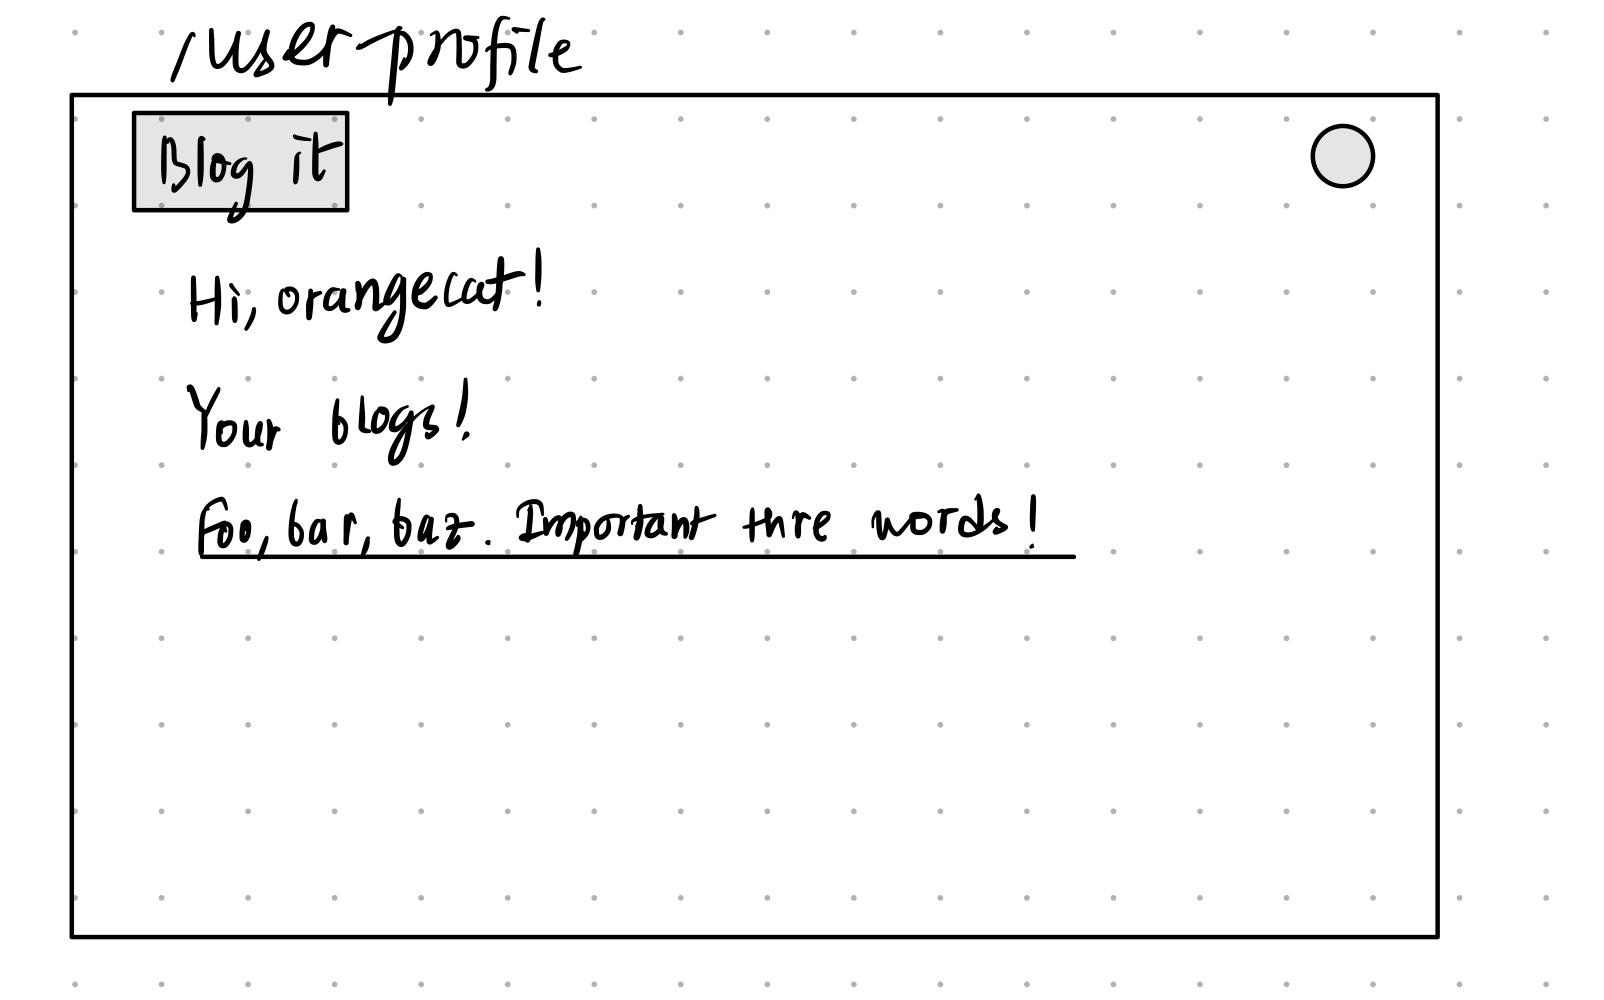 /user-profile
Blog it
Hi, orangecat!
Your blogs!
Foo, bar, baz. Important thre words!